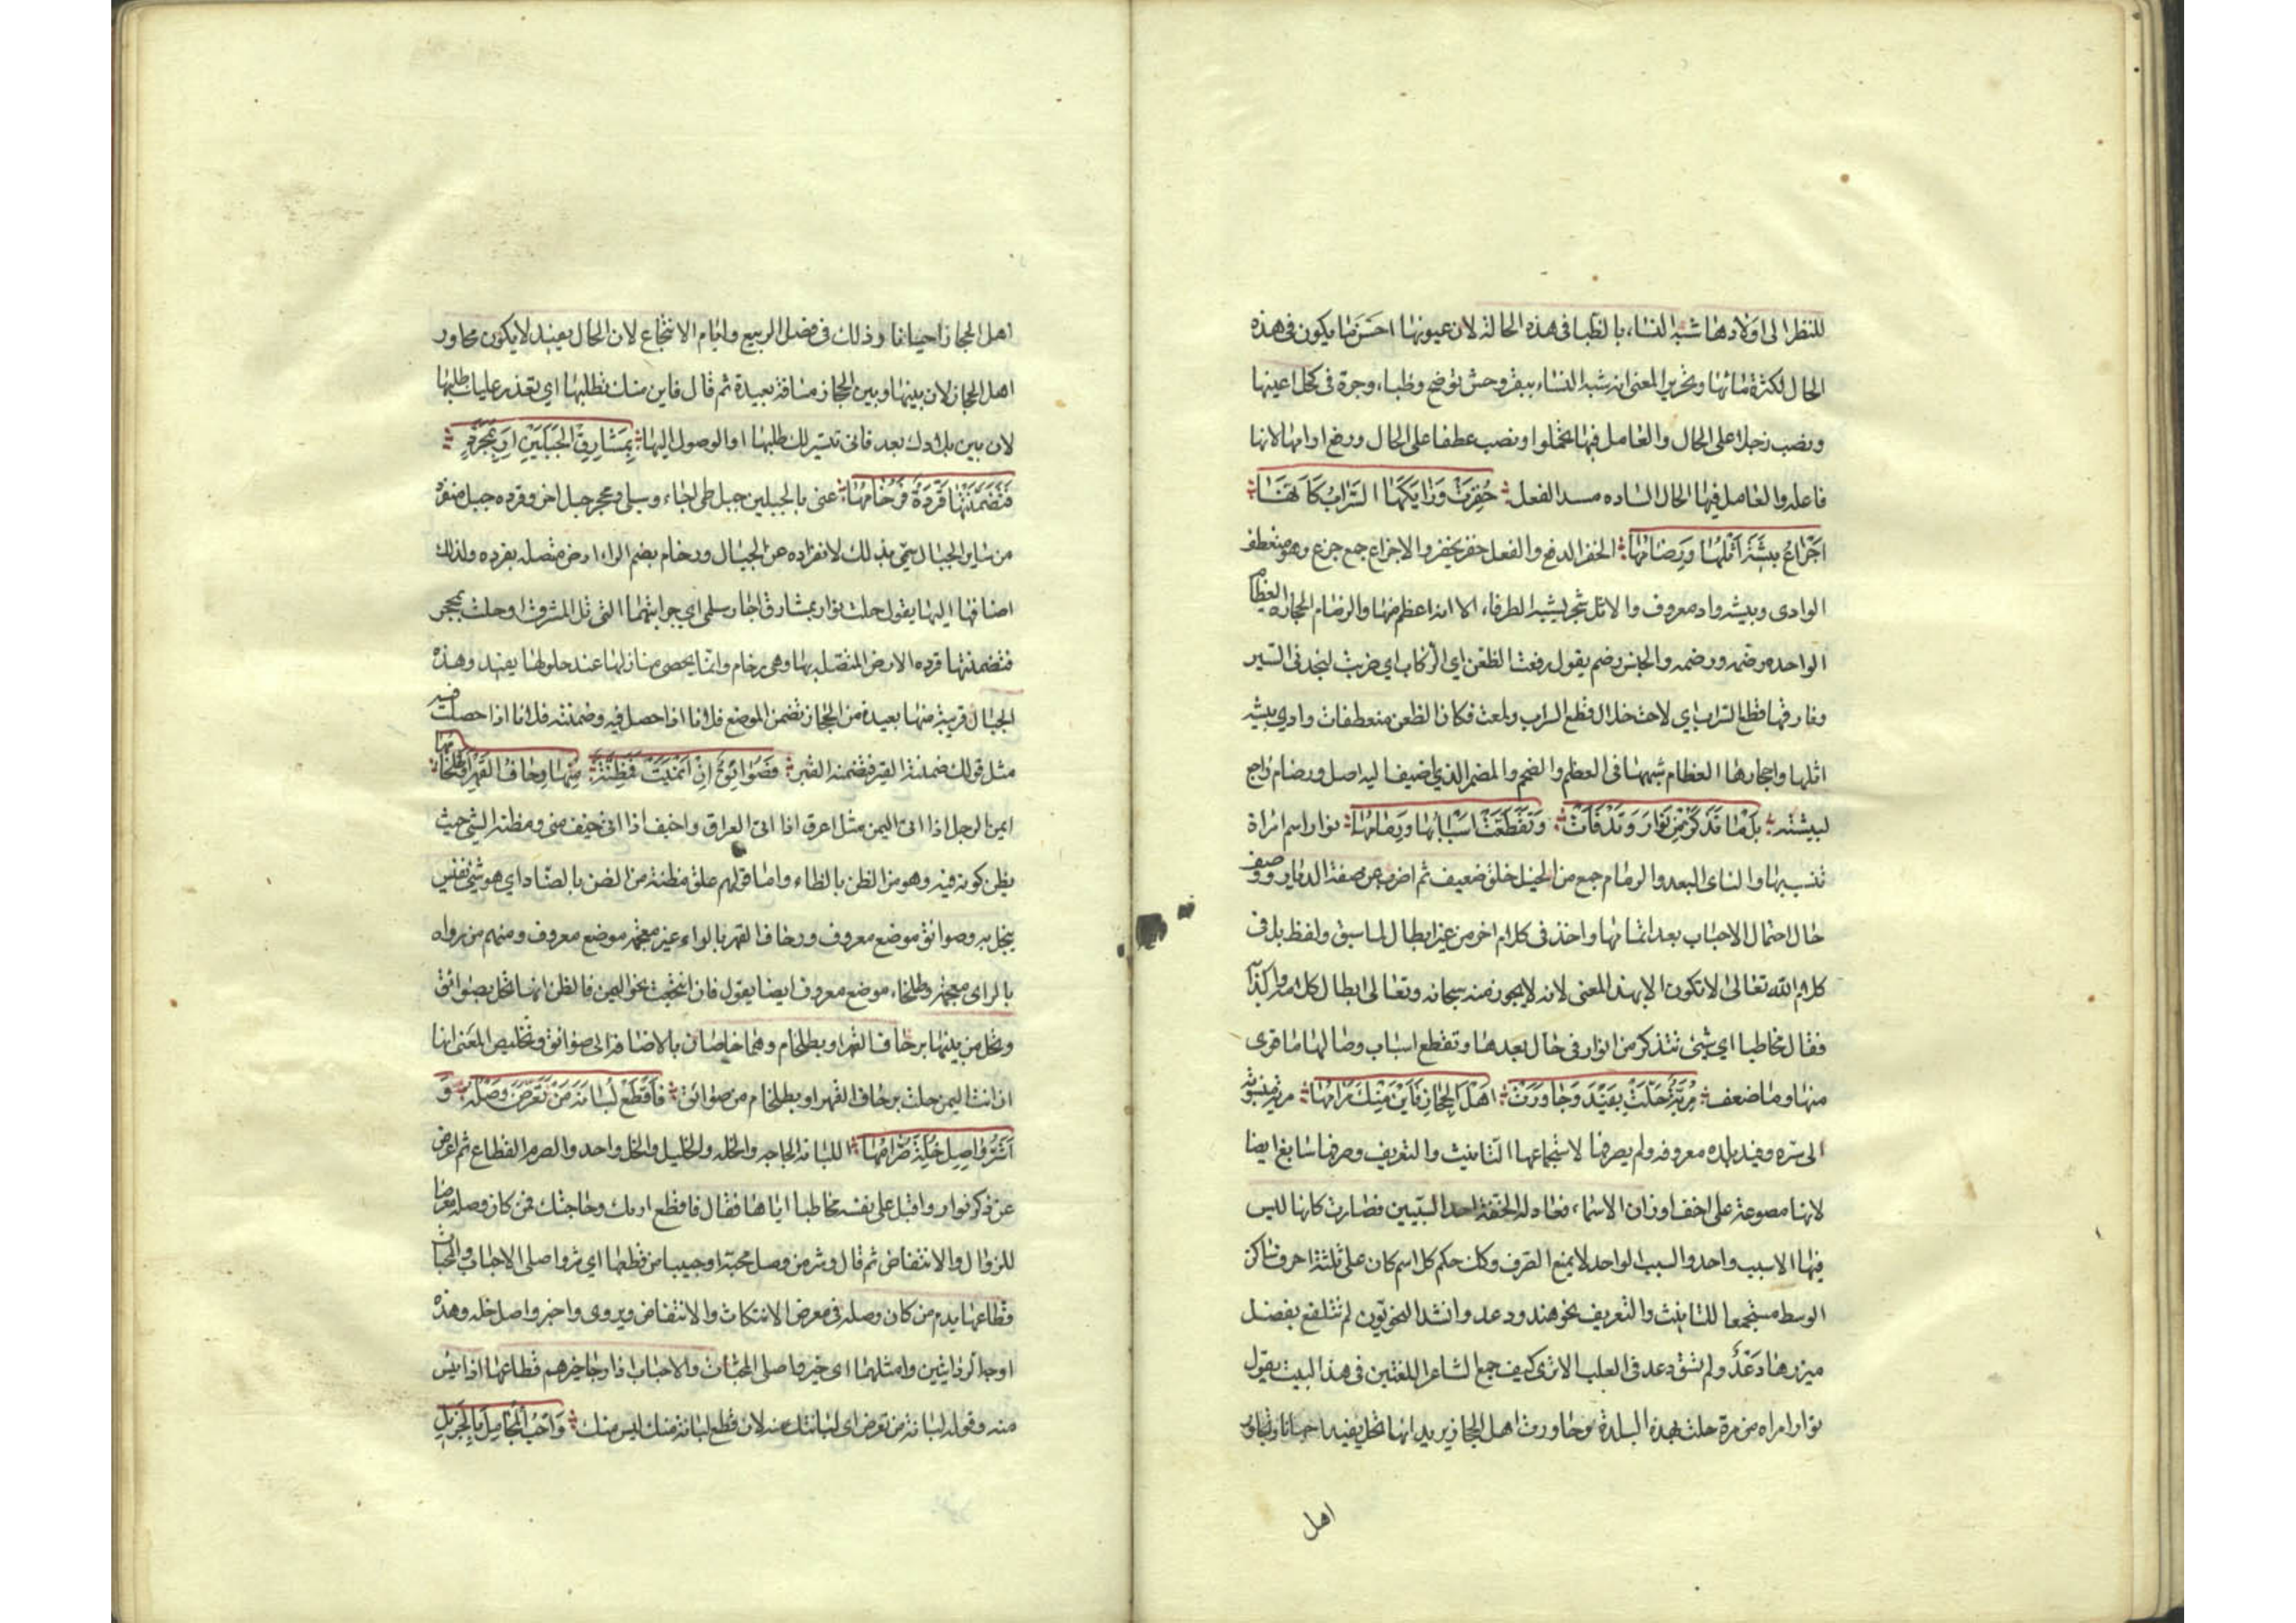 للنظر الى اولادها شبه النساء بالظبا في هذه الحالة لان عيونها احسن ما يكون في هذه
الحال لكثرة مائها وتحرير المعنى انه شبه النساء ببقر وحش توضح وظباء وجرة في كحل اعينها
ونصب زجلا على الحال والعامل فيها تحملوا ونصب عطفا على الحال ورفع ارامها لانها
فاعله والعامل فيها الحال الساده مسد الفعل حُفِزَتْ وَزَايَلَهَا السَّرَابُ كَاَنَّهَا
اَجْزَاعُ بِيشَةَ اَثْلُهَا وَرِضَامُهَا الحفز الدفع والفعل حفز يحفز والاجزاع جمع جزع وهو منعطف
الوادى وبيشه واد معروف والاثل شجر يشبه الطرفاء الا انه اعظم منها والرضام الحجاره العظام
الواحده رضمه ورضمه والجنس رضم يقول دفعت الظعن اى الركاب اي ضربت لتجد في السير
وفارقها قطع السراب اي لاحت خلال قطع السراب ولمعت فكان الظعن منعطفات وادي بيشه
اثلها واحجارها العظام شبهها في العظم والضخم والمضمر الذي اضيف اليه اصل ورضام راجع
لبيشته بَلْ مَا تَذَكَّرُ مِنْ نَوَارَ وَقَدْ نَأَتْ وَتَقَطَّعَتْ اَسْبَابُهَا وَرِمَامُهَا نوار اسم امراة
تنسب بها والناى البعد والرمام جمع من الحبل خلق ضعيف ثم اضرب عن صفة الديار ووصف
حال احتمال الاحباب بعد تمامها واخذ في كلام اخر من غير ابطال لما سبق ولفظ بل في
كلام الله تعالى لا تكون الا بهذ المعنى لانه لا يجوز منه سبحانه وتعالى ابطال كلامه واكذابه
فقال مخاطبا اي شئ تتذكر من نوار في حال بعدها وتقطع اسباب وصالها ما قوى
منها وما ضعف مُرِّيَّةٌ حَلَّتْ بِفَيْدَ وَجَاوَرَتْ اَهْلَ الحِجَازِ فَاَيْنَ مِنْكَ مَرَامُهَا مريه منسوبة
الى مره وفيد بلده معروفه ولم يصرفها لاستجماعها التانيث والتعريف وصرفها سايغ ايضا
لانها مصوغة على اخف اوزان الاسماء فعادلت الخفة احد السببين فصارت كانها ليس
فيها الا سبب واحد والسبب الواحد لا يمنع الصرف وكذلك حكم كل اسم كان على ثلثة احرف ساكن
الوسط مستجمعا للتانيث والتعريف نحو هند ودعد وانشد النحويون لم تتلفع بفضل
ميزرها دَعْدٌ ولم تسق دعد في العلب الا ترى كيف جمع الشاعر اللغتين في هذا البيت يقول
نوار امراه من مرة حلت بهذه البلدة وجاورت اهل الحجاز يريد انها تحل بفيد احيانا وتجاور
اهل
اهل الحجاز احيانا وذلك في فصل الربيع وايام الانتجاع لان الحال بفيد لا يكون مجاور
اهل الحجاز لان بينها وبين الحجاز مسافة بعيدة ثم قال فاين منك تطلبها اي تعذر عليك طلبها
لان بين بلادك بعد فانى تيسر لك طلبها او الوصول اليها بِمَشَارِقِ الجَبَلَيْنِ اَوْ بِمُحَجَّرٍ
فَتَضَمَّنَتْهَا فَرْدَةٌ فَرُخَامُهَا عنى بالجبلين جبلى طى اجاء وسلى ومحجر جبل اخر وفرده جبل منفرد
من ساير الجبال سمى بذلك لانفراده عن الجبال ورخام بضم الراء ارض متصله بفرده ولذلك
اضافها اليها يقول حلت نوار بمشارق اجا وسلمى اي جوانبهما التى تلى المشرق او حلت بمحجر
فتضمنتها فرده الارض المتصله بها وهى رخام وانما يحصى منازلها عند حلولها بفيد وهذه
الجبال قريبة منها بعيدة من الحجاز تضمن الموضع فلانا اذا حصل فيه وضمنته فلانا اذا حصلت فيه
مثل قولك ضمنته القبر فتضمنه القبر فَصُوَائِقٌ اِنْ اَيْمَنَتْ فَمَظِنَّةٌ مِنْهَا وِحَافُ القَهْرِ اَوْ طِلْخَامُهَا
ايمن الرجل اذا اتى اليمن مثل اعرق اذا اتى العراق واخيف اذا اتى خيف منى ومظنة الشي حيث
يظن كونه فيه وهو من الظن بالظاء واما قولهم علق مظنة من الضن بالضاد اي هو شي نفيس
يبخل به وصوائق موضع معروف ورحاف القهر بالراء غير معجمة موضع معروف ومنهم من رواه
بالزاى معجمة وطلخام موضع معروف ايضا يقول فان انتجعت نحو اليمن فالظن انها تحل بصوائق
وتحل من بينها برحاف القهر او بطلخام وهما خاصان بالاضافة الى صوائق وتخليص المعنى انها
ان اتت اليمن حلت برحاف القهر او بطلخام من صوائق فَاقْطَعْ لُبَانَةَ مَنْ تَعَرَّضَ وَصْلُهُ وَ
لَشَرُّ وَاصِلِ خُلَّةٍ صَرَّامُهَا اللبانه الحاجه والخله والخليل والخل واحد والصرم القطاع ثم اعرض
عن ذكر نوار واقبل على نفسه مخاطبا اياها فقال فاقطع اربك وحاجتك ممن كان وصله معرضا
للزوال والانتقاض ثم قال وشر من وصل محبة او حبيبا من قطعها اي شر واصلى الاحباب والمحبات
قطاعها يذم من كان وصله في معرض الانتكاث والانتقاض ويروى واخير واصل خله وهذه
اوجه الروايتين وامثلهما اى خير واصلى المحبات والاحباب اذا رجا خيرهم قطاعها اذا يئس
منه وقوله لبانة من تعرض اى لبانتك منه لان قطع لبانة منك ليس منك وَاحْبُ المُجَامِلَ بِالجَزِيلِ